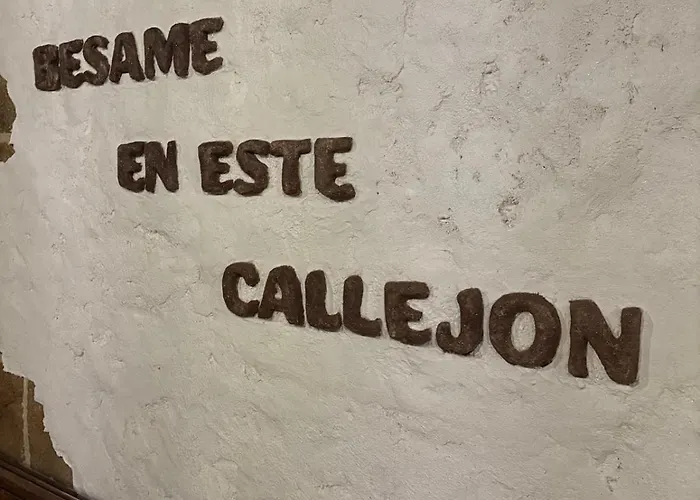 BESAME
EN ESTE
CALLEJON